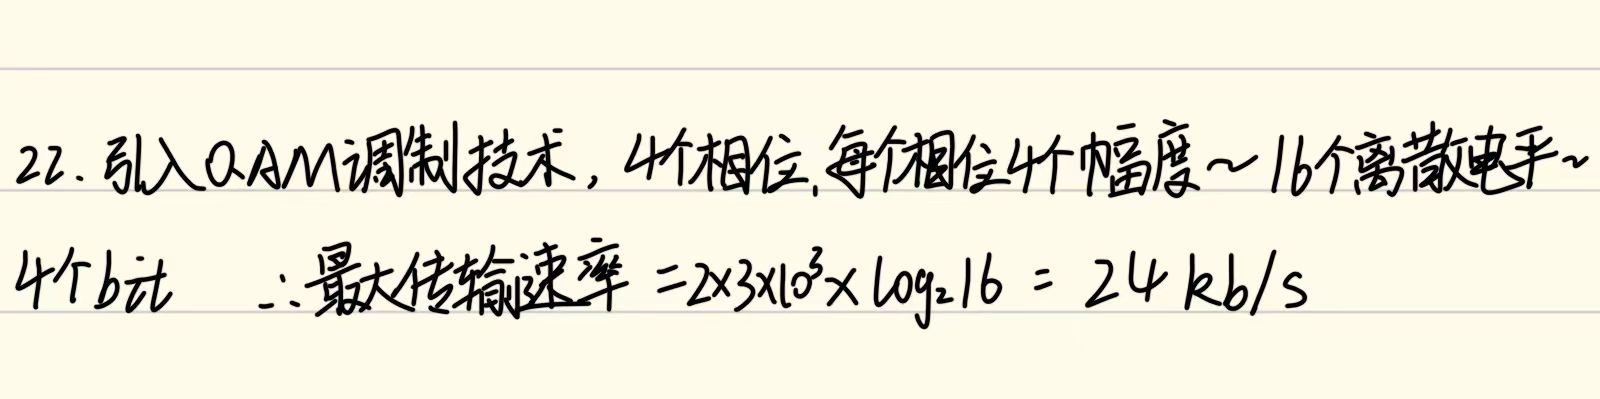 22. 引入QAM调制技术, 4个相位,每个相位4个幅度~16个离散电平~
4个bit ∴最大传输速率 =2×3×10³×log₂16 = 24 kb/s